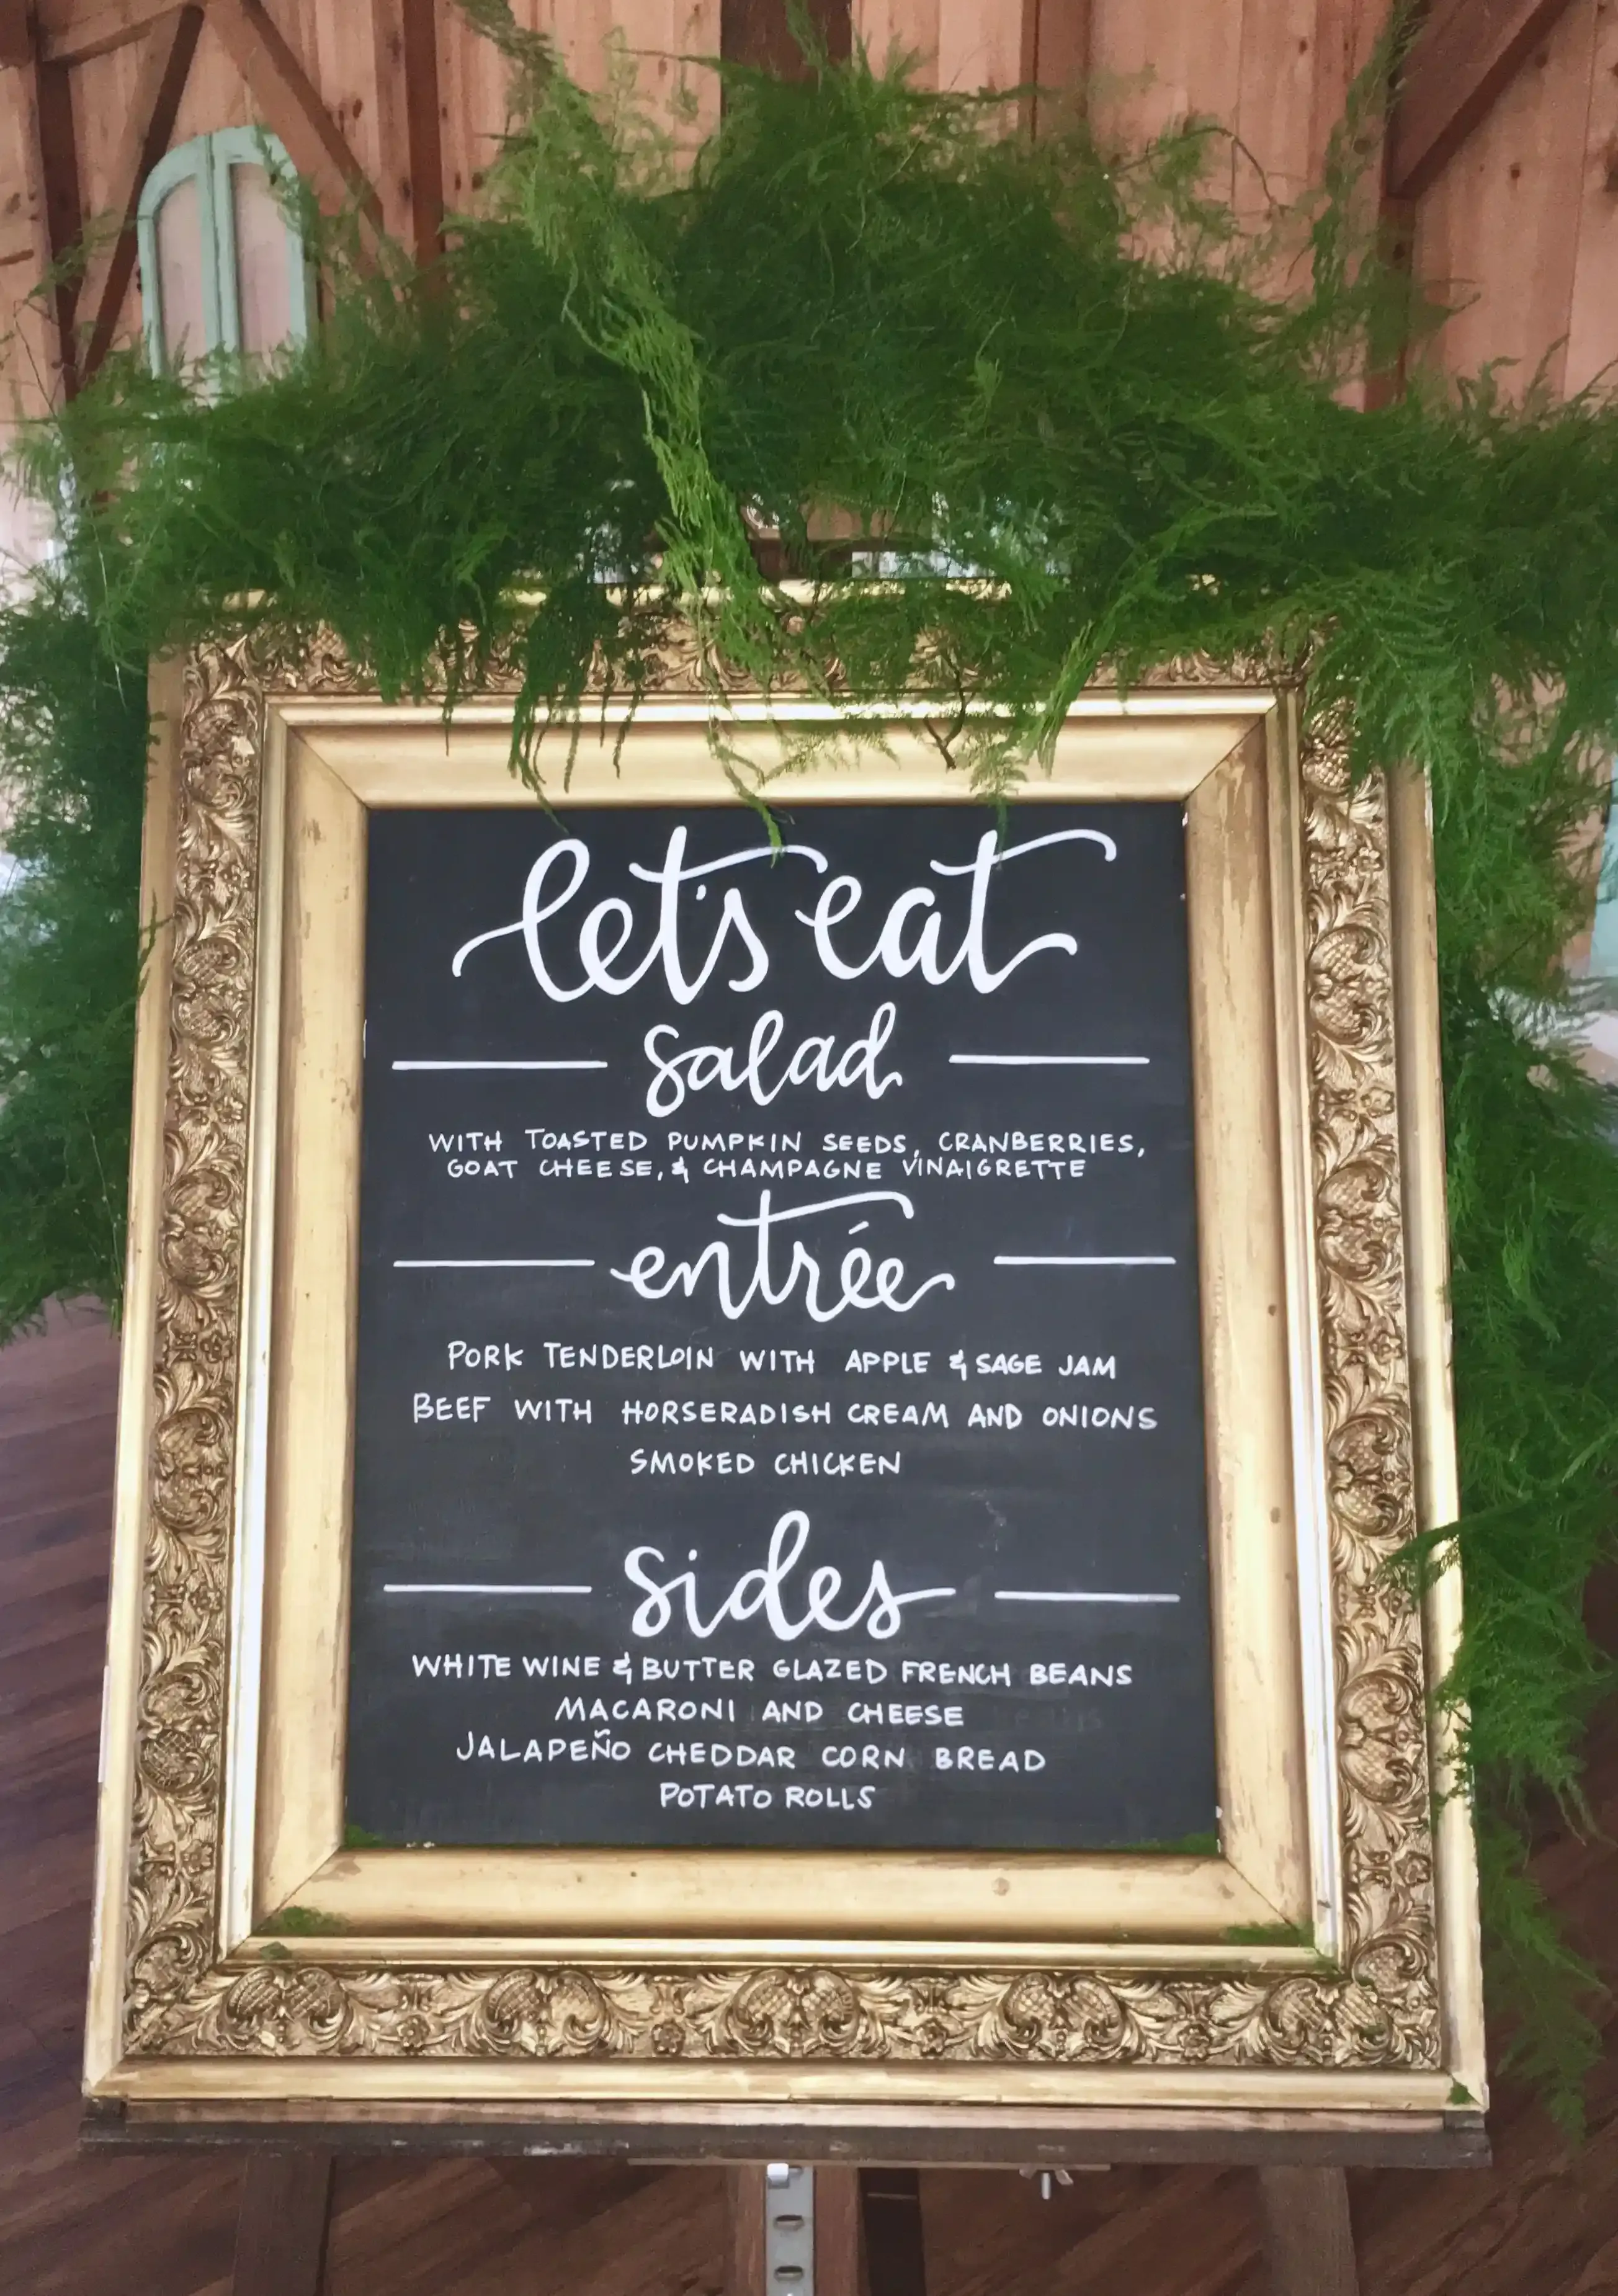 let's eat
salad
WITH TOASTED PUMPKIN SEEDS, CRANBERRIES,
GOAT CHEESE, & CHAMPAGNE VINAIGRETTE
entrée
PORK TENDERLOIN WITH APPLE & SAGE JAM
BEEF WITH HORSERADISH CREAM AND ONIONS
SMOKED CHICKEN
sides
WHITE WINE & BUTTER GLAZED FRENCH BEANS
MACARONI AND CHEESE
JALAPEÑO CHEDDAR CORN BREAD
POTATO ROLLS